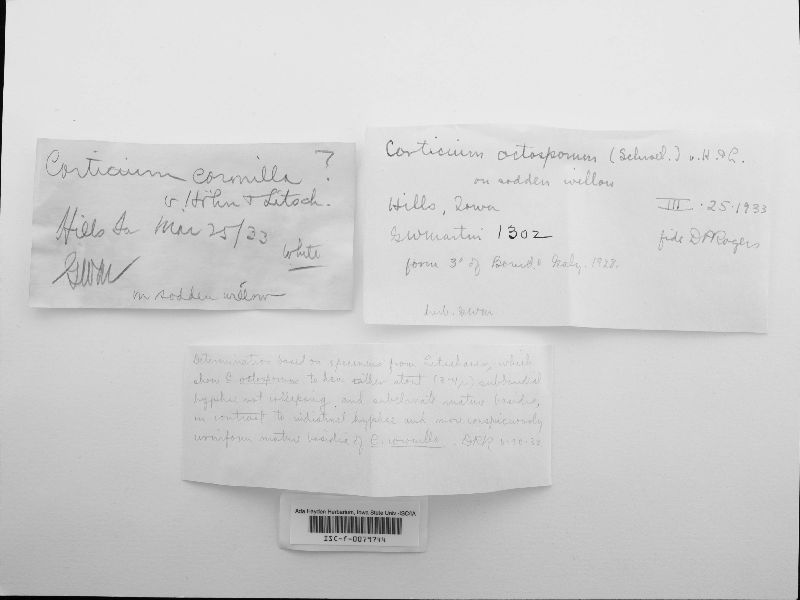 Corticium coronilla ?
v. Höhn & Litsch.
Hills Ia Mar 25/33
White
GWM
on sodden willow
Corticium octosporum (Schroet.) v. H. & L.
on sodden willow
Hills, Iowa III · 25 · 1933
GWMartin 1302 fide DPRogers
form 3° of Bourd. & Galz. 1928.
herb. GWM
Determination based on specimens from Litschauer, which
show C. octosporum to have rather stout (3-4μ) subhymenial
hyphae not collapsing, and subclavate mature basidia,
in contrast to indistinct hyphae and more conspicuously
urniform mature basidia of C. coronilla. DPR
Ada Hayden Herbarium, Iowa State Univ.-ISC/IA
ISC-F-0079744